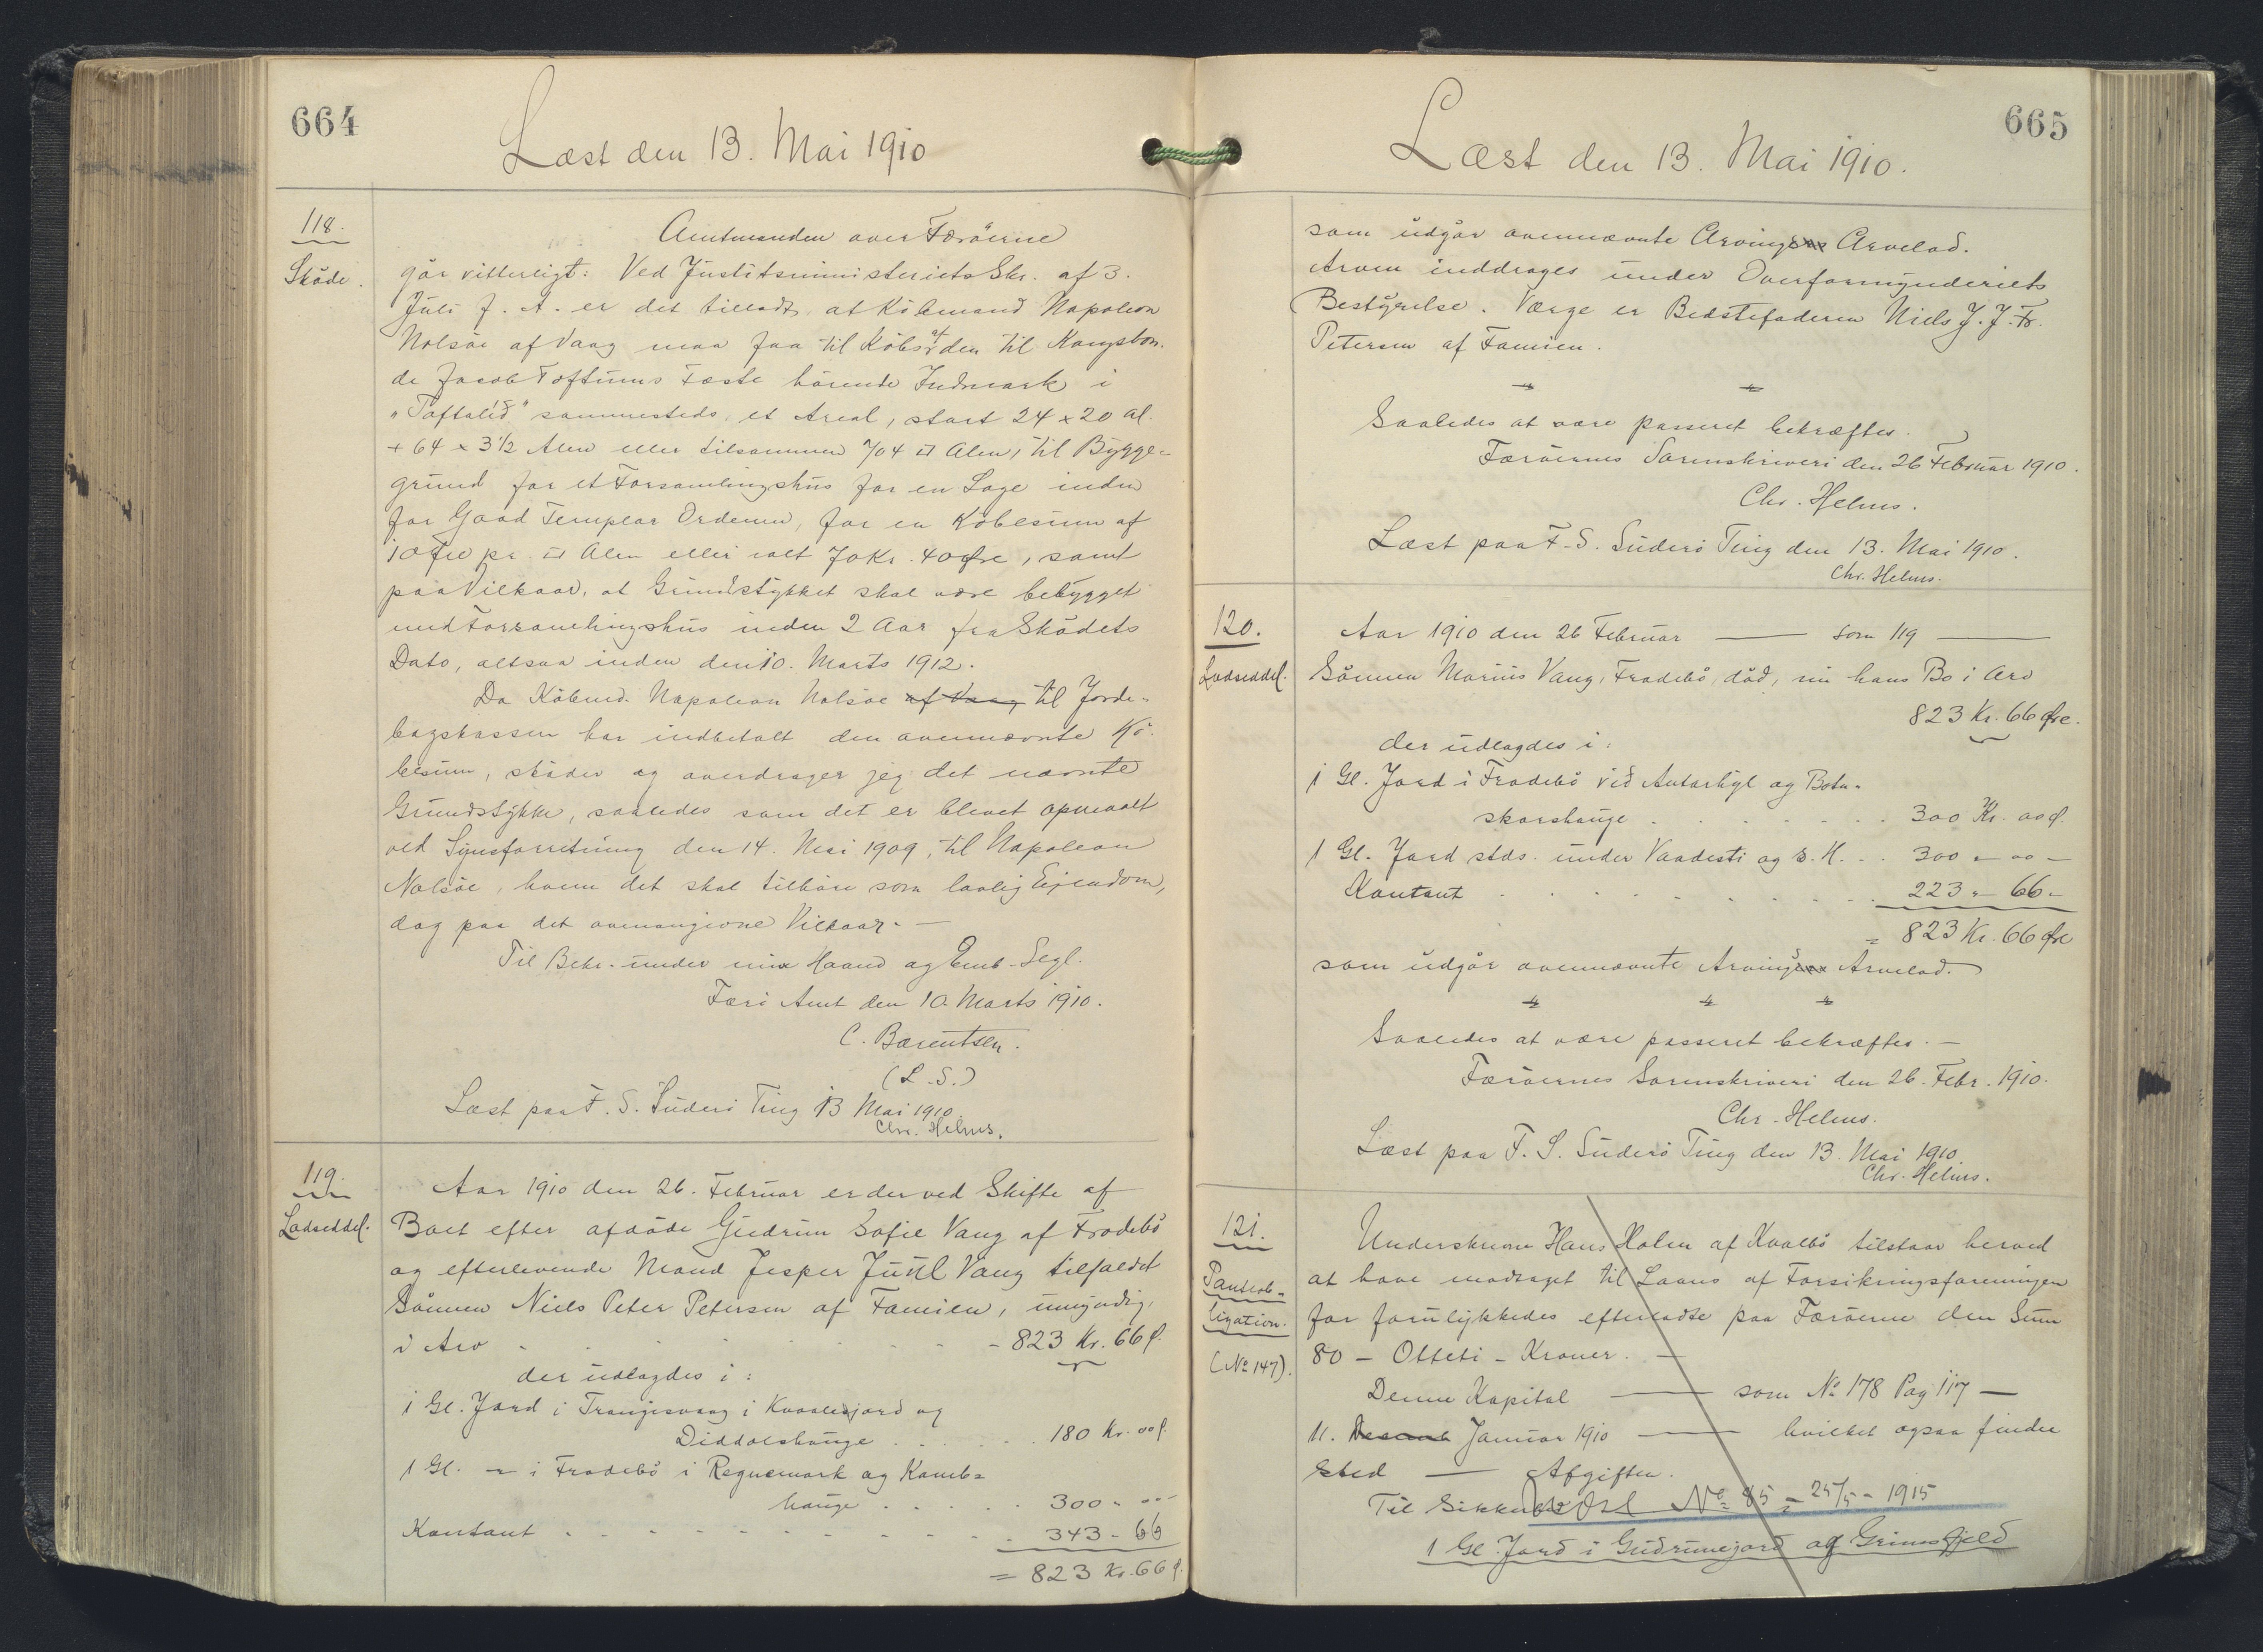 664
Læst den 13. Mai 1910
118.
Sköde.
Amtmanden over Færöerne
gör vitterligt: Ved Justitsministeriets Skr. af 3.
Juli f. A. er det tilladt, at Köbmand Napoleon
Nolsöe af Vaag maa faa til Köbs af den til Kongsbon-
de Jacob Toftums Fæste hörende Indmark i
"Toftalid" sammesteds, et Areal, stort 24 x 20 Al.
+ 64 x 3 1/2 Alen eller tilsammen 704 □ Alen, til Bygge-
grund for et Forsamlingshus for en Loge inden
for Good Templar Ordenen, for en Köbesum af
10 Øre pr. □ Alen eller ialt 70 Kr. 40 Øre, samt
paa Vilkaar, at Grundstykket skal være bebygget
med Forsamlingshus inden 2 Aar fra Sködets
Dato, altsaa inden den 10. Marts 1912.
Da Köbmd. Napoleon Nolsöe af Vaag til Jorde-
bogskassen har indbetalt den ovennævnte Kö-
besum, sköder og overdrager jeg det nævnte
Grundstykke, saaledes som det er blevet opmaalt
ved Synsforretning den 14. Mai 1909, til Napoleon
Nolsöe, hvem det skal tilhöre som lovlig Ejendom,
dog paa det ovenangivne Vilkaar. —
Til Bekr. under min Haand og Emb. Segl.
Færö Amt den 10. Marts 1910.
C. Bærentsen.
(L. S.)
Læst paa F. S. Suderö Ting 13 Mai 1910.
Chr. Helms.
119.
Lodseddel.
Aar 1910 den 26. Februar er der ved Skifte af
Boet efter afdöde Gudrun Sofie Vang af Frodebö
og efterlevende Mand Jesper Juul Vang tilfaldet
Sönnen Niels Peter Petersen af Famien, umyndig,
i Arv - 823 Kr. 66 Ø.
der udlagdes i:
1 Gl. Jord i Trangisvaag i Kvalesjord og
Diddoeshauge . . . . 180 Kr. 00 Ø.
1 Gl. — i Frodebö i Regnemork og Kamb=
hauge . . . . . 300 - 00 -
Kontant . - - - - - - - - - - 343 - 66
= 823 Kr. 66 Ø.
665
Læst den 13. Mai 1910.
som udgör ovennævnte Arvings Arvelod.
Arven inddrages under Overformynderiets
Bestyrelse. Værge er Bedstefaderen Niels J. J. Fr.
Petersen af Famien.
Saaledes at være passeret bekræftes.
Færöernes Sorenskriveri den 26 Februar 1910.
Chr. Helms.
Læst paa F. S. Suderö Ting den 13. Mai 1910.
Chr. Helms.
120.
Lodseddel.
Aar 1910 den 26 Februar —— som 119 ——
Sönnen Marius Vang, Frodebö, död, nu hans Bo i Arv
823 Kr. 66 Øre.
der udlagdes i:
1 Gl. Jord i Frodebö ved Antarhyl og Botn-
skorshauge . . . . . . . 300 Kr. 00 Ø.
1 Gl. Jord stds. under Vaadesti og s. H. . . 300 - 00 -
Kontant . . . . . . . . 223 - 66 -
= 823 Kr. 66 Øre
som udgör ovennævnte Arvings Arvelod.
Saaledes at være passeret bekræftes. —
Færöernes Sorenskriveri den 26. Febr. 1910.
Chr. Helms.
Læst paa F. S. Suderö Ting den 13. Mai 1910.
Chr. Helms.
121.
Panteob-
ligation.
(No 147).
Underskrevne Hans Holm af Kvalbö tilstaar herved
at have modtaget til Laans af Forsikringsforeningen
for forulykkedes efterladte paa Færöerne den Sum
80 — Otteti — Kroner. —
Denne Kapital —— som No 178 Pag 117 —
11. Decemb Januar 1910 —— hvilket ogsaa finder
Sted —— Afgiften.
Til Sikkerh No 85 - 25/5 - 1915
1 Gl. Jord i Gudrunegjord og Grimsfjeld